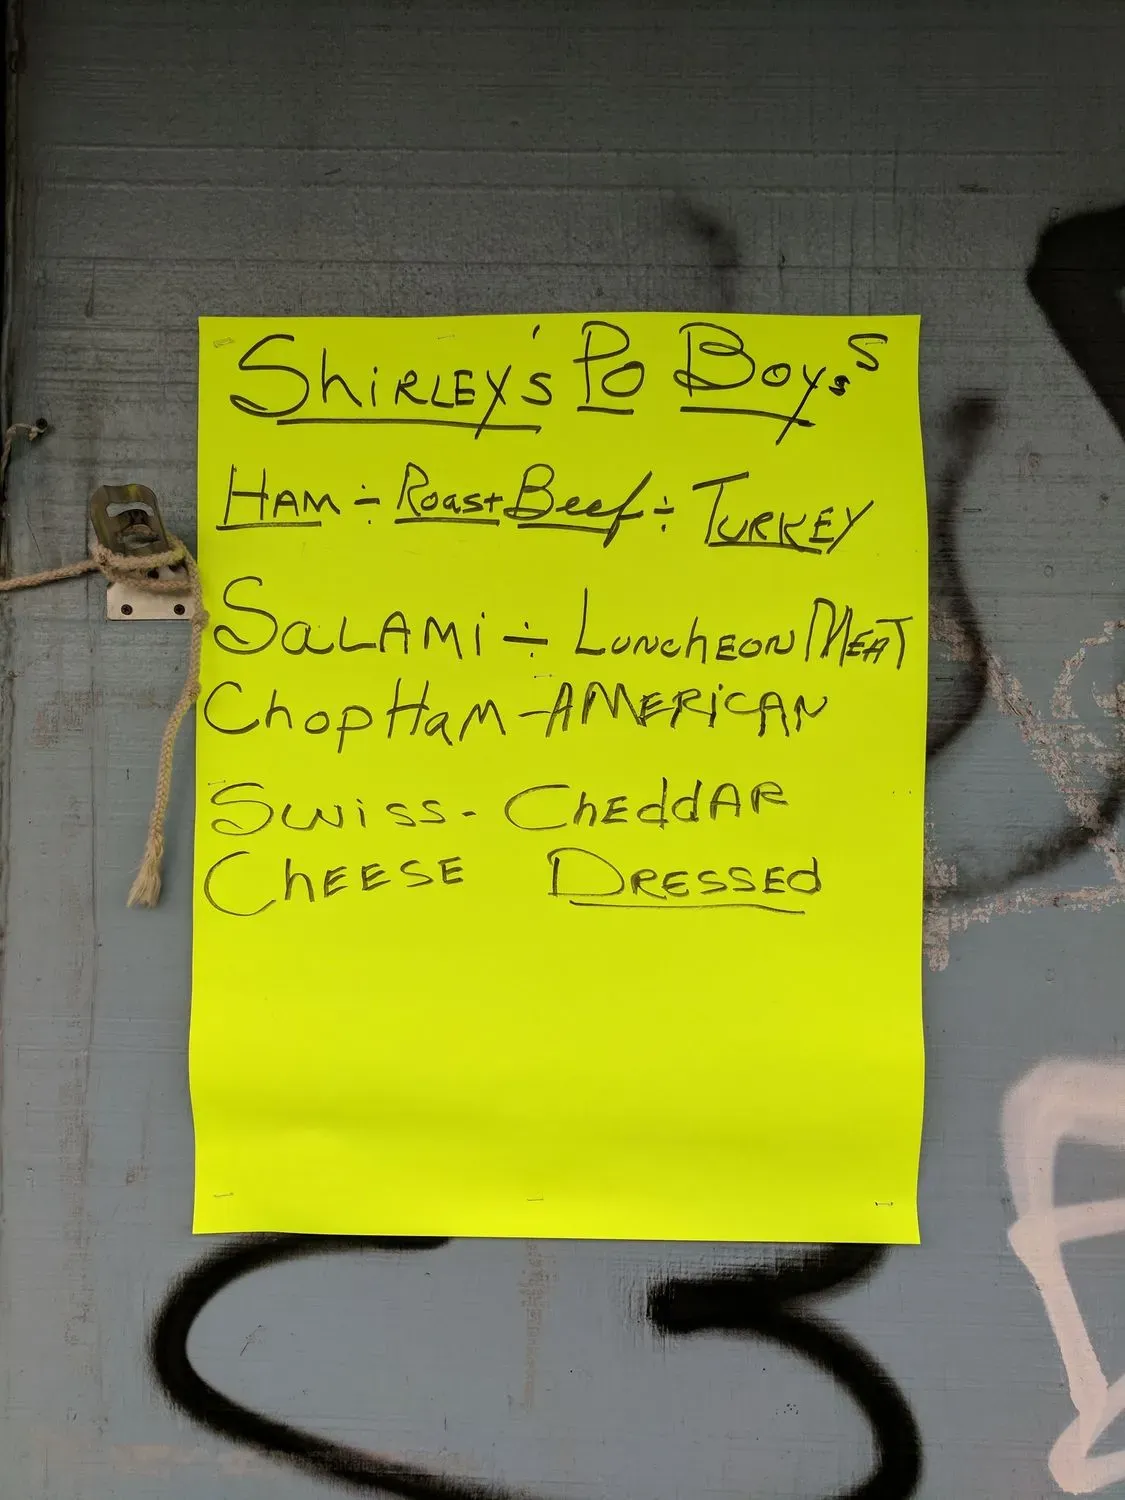 Shirley's Po Boys s
Ham ÷ Roast Beef ÷ Turkey
Salami ÷ Luncheon Meat
Chop Ham - American
Swiss - Cheddar
Cheese Dressed